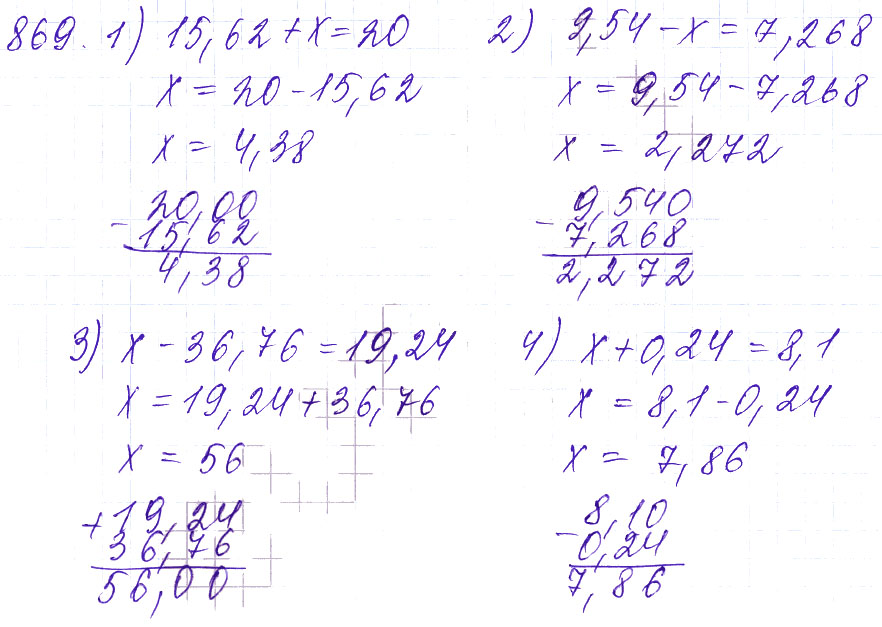 869. 1) 15,62 + x = 20
x = 20 - 15,62
x = 4,38
20,00
- 15,62
4,38
2) 9,54 - x = 7,268
x = 9,54 - 7,268
x = 2,272
9,540
- 7,268
2,272
3) x - 36,76 = 19,24
x = 19,24 + 36,76
x = 56
+ 19,24
36,76
56,00
4) x + 0,24 = 8,1
x = 8,1 - 0,24
x = 7,86
8,10
- 0,24
7,86